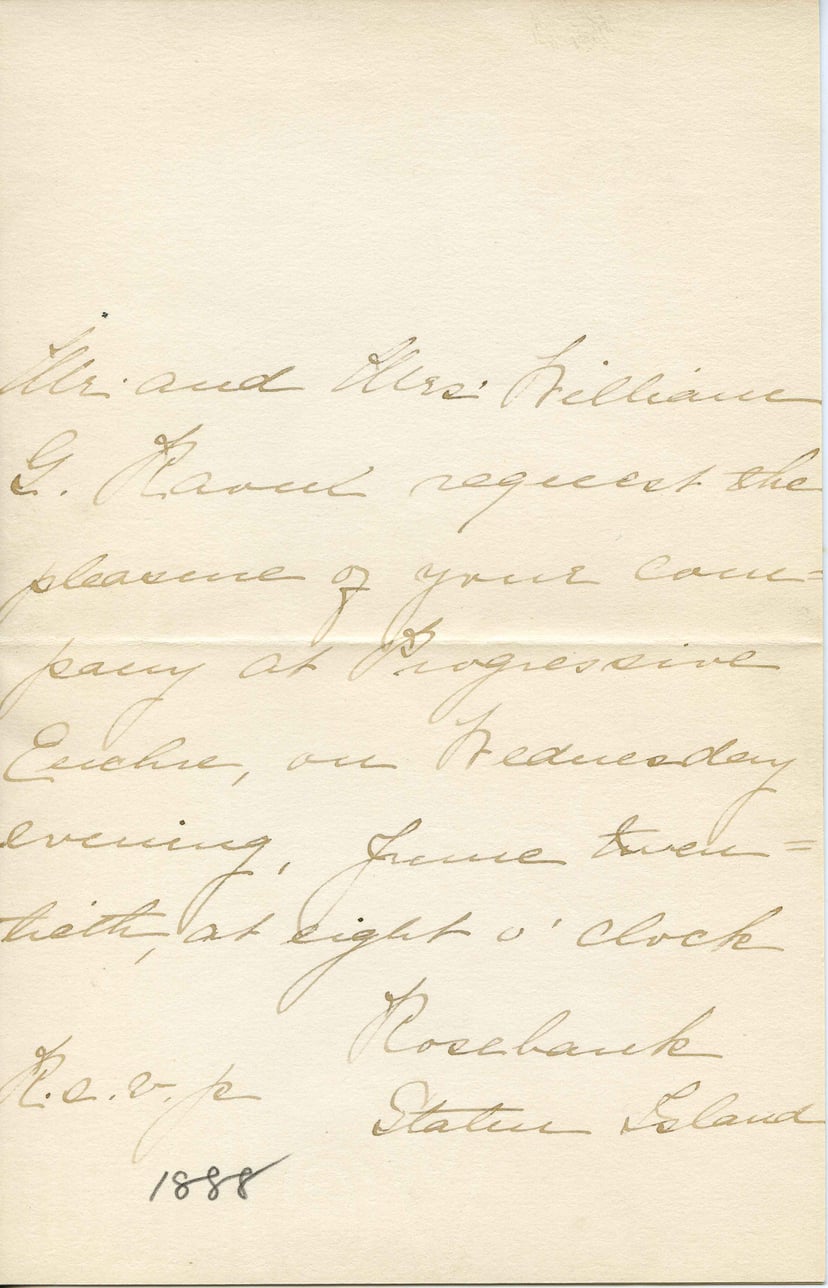 Mr. and Mrs. William
G. Raoul request the
pleasure of your com=
pany at Progressive
Euchre, on Wednesday
evening, June twen=
tieth, at eight o'clock
Rosebank
R.s.v.p
Staten Island
1888